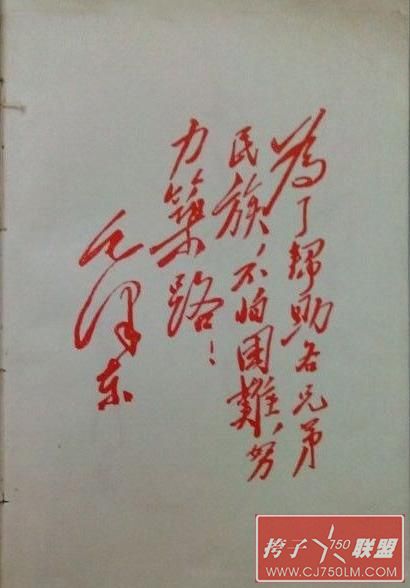 為了幫助各兄弟
民族，不怕困難，努
力築路！
毛泽东
挎子 750 联盟
WWW.CJ750LM.COM